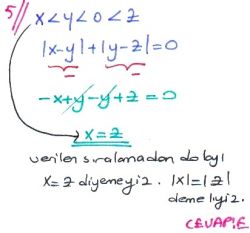 5// x<y<0<z
|x-y|+|y-z|=0
-x+y-y+z=0
x=z
verilen sıralamadan dolayı
x=z diyemeyiz. |x|=|z|
demeliyiz.
CEVAP:E